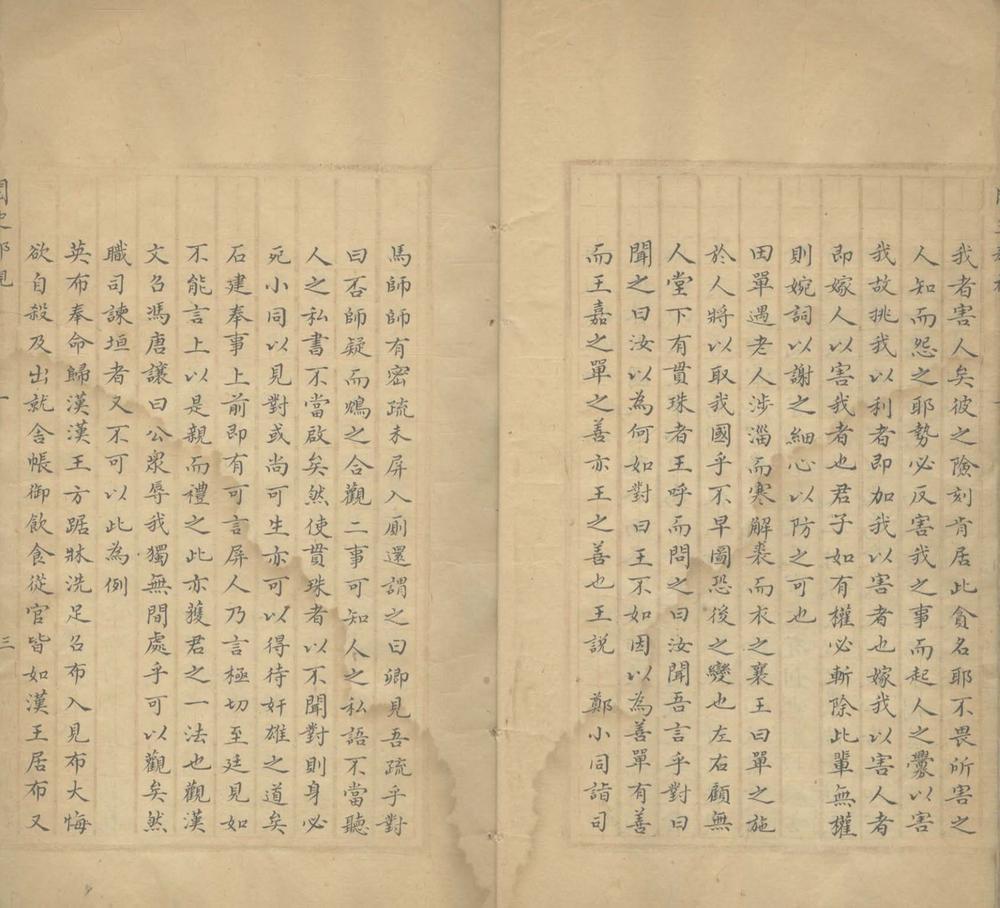 我者害人矣彼之險刻肯居此貪名耶不畏所害之
人知而怨之耶勢必反害我之事而起人之釁以害
我故挑我以利者即加我以害者也嫁我以害人者
即嫁人以害我者也君子如有權必斬除此輩無權
則婉詞以謝之細心以防之可也
田單遇老人涉淄而寒解裘而衣之襄王曰單之施
於人將以取我國乎不早圖恐後之變也左右顧無
人堂下有貫珠者王呼而問之曰汝聞吾言乎對曰
聞之曰汝以為何如對曰王不如因以為善單有善
而王嘉之單之善亦王之善也王說 鄭小同詣司
馬師師有密疏未屏入廁還謂之曰卿見吾疏乎對
曰否師疑而鴆之合觀二事可知人之私語不當聽
人之私書不當啟矣然使貫珠者以不聞對則身必
死小同以見對或尚可生亦可以得待奸雄之道矣
石建奉事上前即有可言屏人乃言極切至廷見如
不能言上以是親而禮之此亦獲君之一法也觀漢
文召馮唐讓曰公衆辱我獨無間處乎可以觀矣然
職司諫垣者又不可以此為例
英布奉命歸漢漢王方踞牀洗足召布入見布大悔
欲自殺及出就舍帳御飲食從官皆如漢王居布又
三